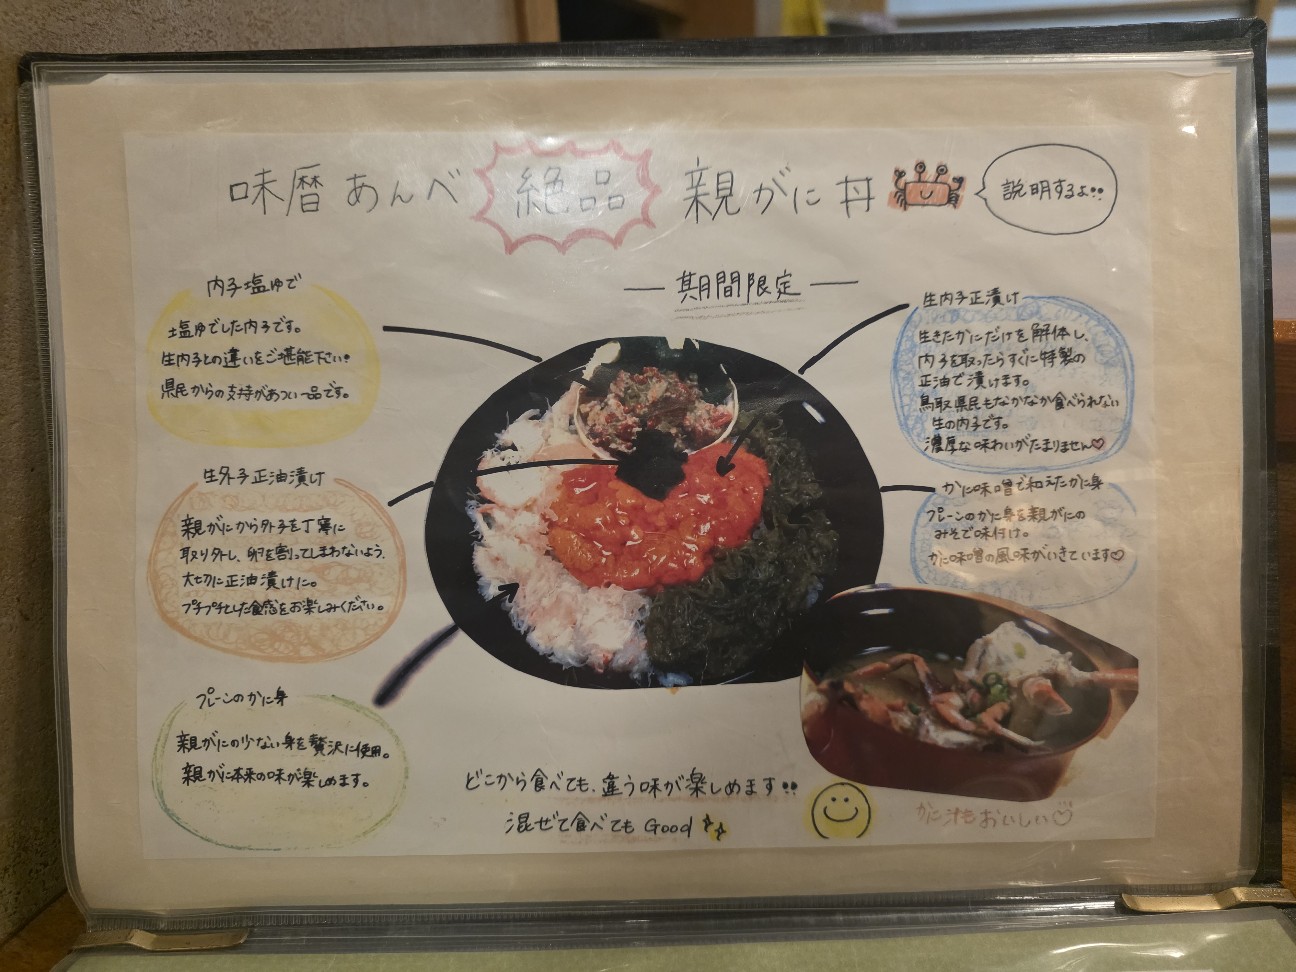 味暦 あんべ 絶品 親がに丼
説明するよ!!
— 期間限定 —
内子塩ゆで
塩ゆでした内子です。
生内子との違いをご堪能下さい!
県民からの支持があつい一品です。
生外子正油漬け
親がにから外子を丁寧に
取り外し、卵を割ってしまわないよう、
大切に正油漬けに。
プチプチとした食感をお楽しみください。
プレーンのかに身
親がにの少ない身を贅沢に使用。
親がに本来の味が楽しめます。
生内子正漬け
生きたかにだけを解体し、
内子を取ったらすぐに特製の
正油で漬けます。
鳥取県民もなかなか食べられない
生の内子です。
濃厚な味わいがたまりません♡
かに味噌で和えたかに身
プレーンのかに身を親がにの
みそで味付け。
かに味噌の風味がいきています♡
どこから食べても、違う味が楽しめます!!
混ぜて食べてもGood
かに汁もおいしい♡